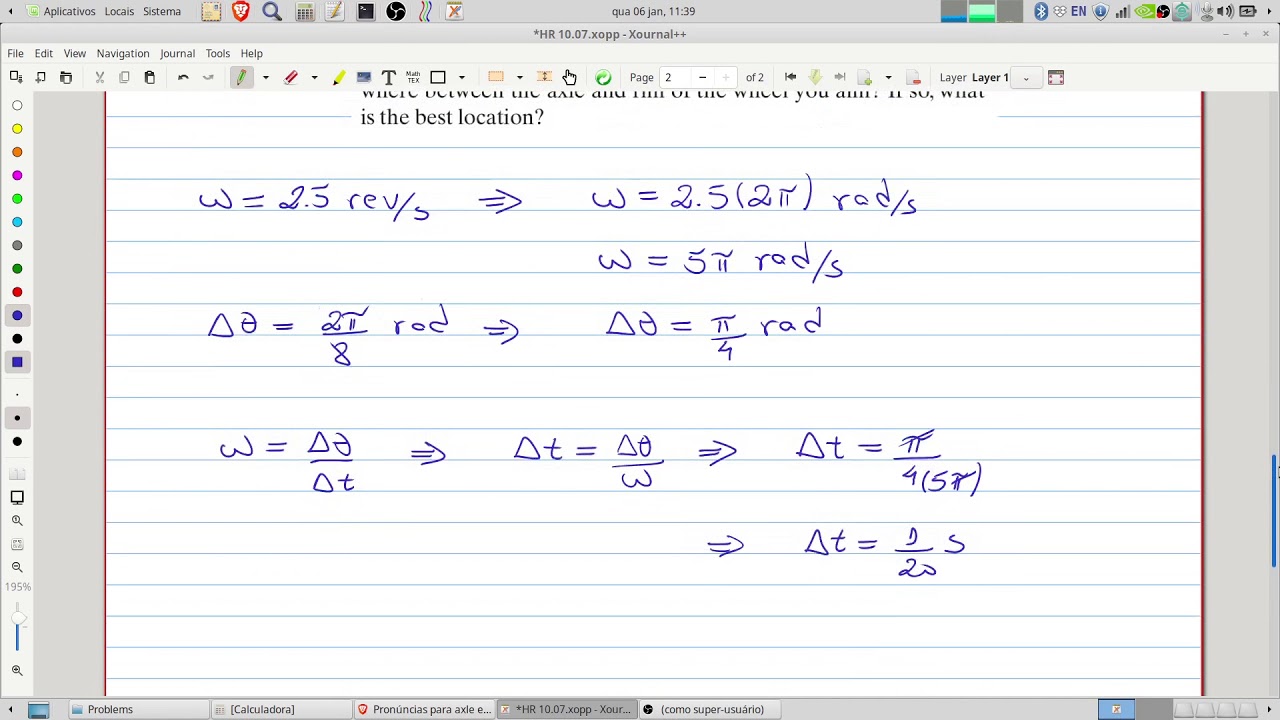 Aplicativos Locais Sistema qua 06 jan, 11:39 EN
*HR 10.07.xopp - Xournal++
File Edit View Navigation Journal Tools Help
T Math TEX Page 2 of 2 Layer Layer 1
where between the axle and rim of the wheel you aim? If so, what
is the best location?
ω = 2.5 rev/s ⇒ ω = 2.5(2π) rad/s
ω = 5π rad/s
Δθ = 2π/8 rad ⇒ Δθ = π/4 rad
ω = Δθ/Δt ⇒ Δt = Δθ/ω ⇒ Δt = π/4(5π)
⇒ Δt = 1/20 s
195%
Problems [Calculadora] Pronúncias para axle e... *HR 10.07.xopp - Xour... (como super-usuário)